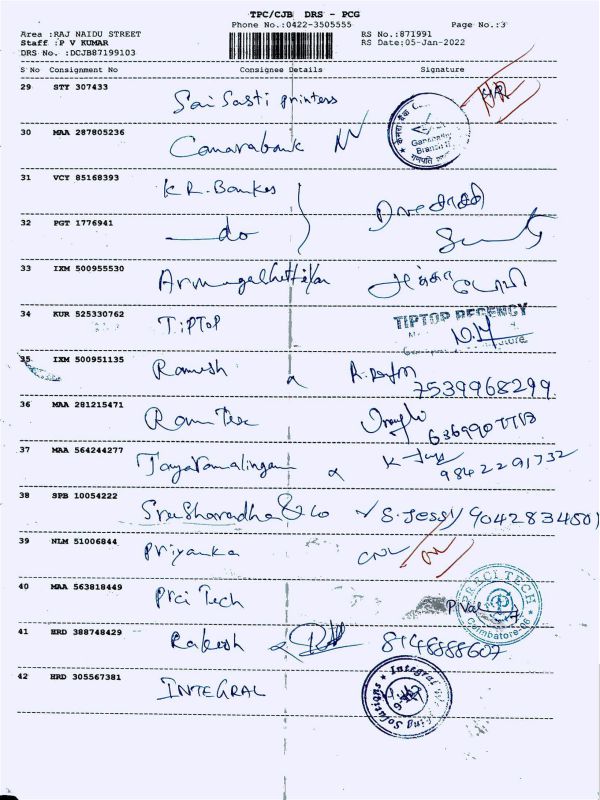 TPC/CJB DRS - PCG
Phone No.:0422-3505555 Page No.:3
Area :RAJ NAIDU STREET RS No.:871991
Staff :P V KUMAR RS Date:05-Jan-2022
DRS No. :DCJB87199103
S No Consignment No Consignee Details Signature
29 STY 307433 Sai Sasti printers
30 MAA 287805236 Canarabank
31 VCY 85168393 K.R. Bankes
32 PGT 1776941 do
33 IXM 500955530
34 KUR 525330762 TipTop TIPTOP REGENCY
35 IXM 500951135 Ramesh 7539968299
36 MAA 281215471 Ram Tex
37 MAA 564244277 Jayaramalingam 9842291732
38 SPB 10054222 Sree Sharadha & Co S. Jessy 9042834501
39 NLM 51006844 Priyanka
40 MAA 563818449 Prci Tech PRECI TECH Coimbatore-06
41 HRD 388748429 Rakesh 8148888607
42 HRD 305567381 INTEGRAL Integral Solutions